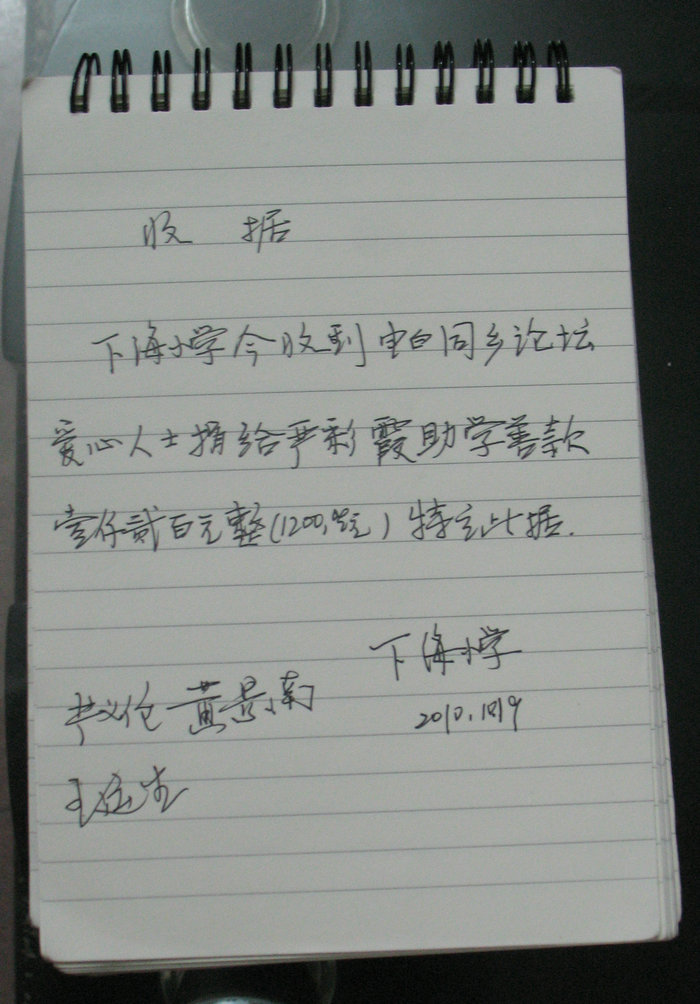 收 据
下海小学今收到电白同乡论坛
爱心人士捐给严彩霞助学善款
壹仟贰百元整(1200.00元)特立此据.
下海小学
黄景南
2010.10.19